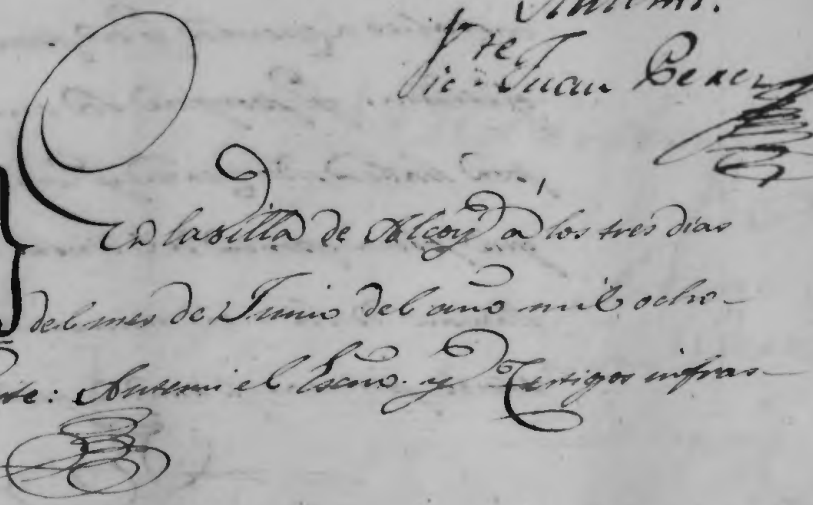 Antemi.
Vic.te Juan Perez
En la Villa de Alcoy á los tres dias
del mes de Junio del año mil ocho-
Antemi el Escno. y Testigos infras-